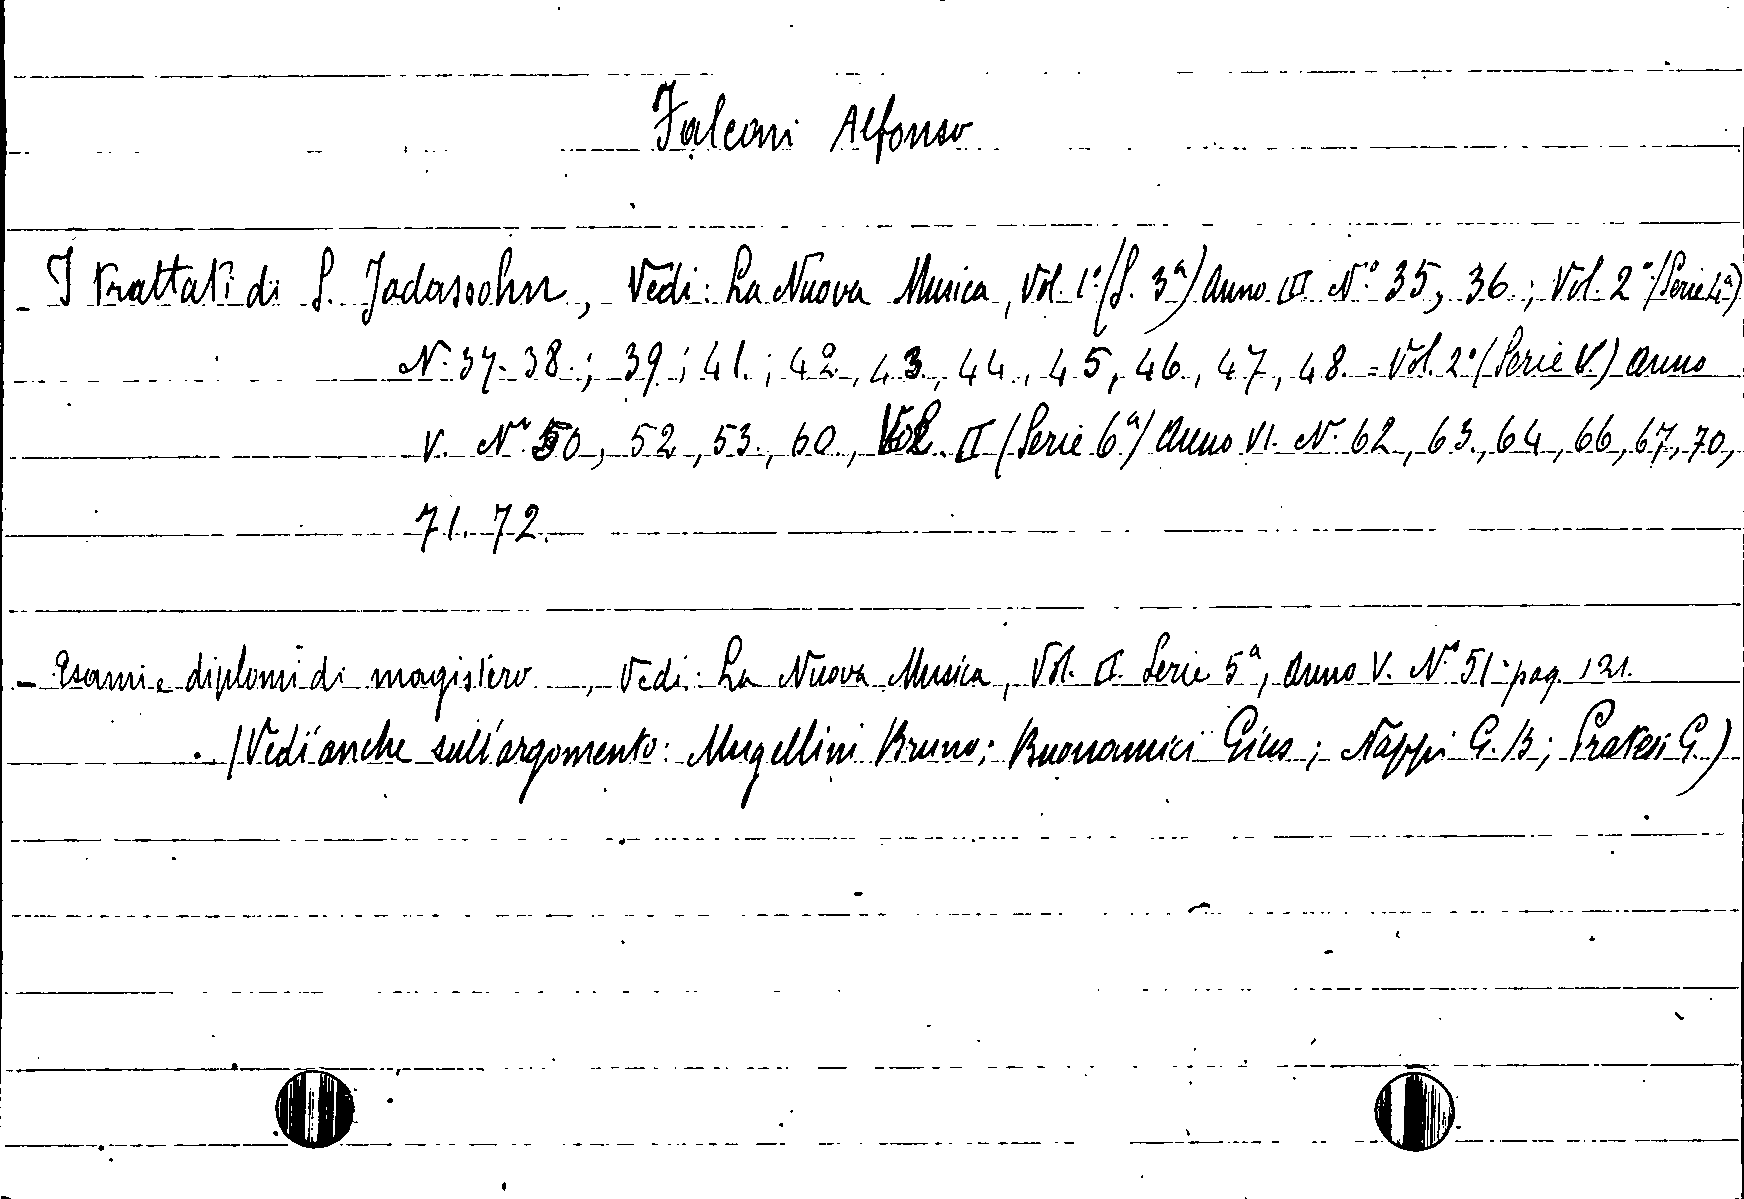 Falconi Alfonso
- I trattati di S. Jadassohn, Vedi: La Nuova Musica, Vol. 1º (S. 3ª) Anno III Nº 35, 36.; Vol. 2º (Serie 4ª)
N. 37-38.; 39.; 41.; 42., 43., 44., 45, 46., 47, 48. = Vol. 2º (Serie V.) Anno
V. Nº 50, 52, 53., 60., Vol. II (Serie 6ª) Anno VI. Nº 62, 63., 64, 66, 67, 70,
71. 72.
- Esami e diplomi di magistero, Vedi: La Nuova Musica, Vol. II. Serie 5ª, Anno V. Nº 51 - pag. 121.
(Vedi anche sull'argomento: Mugellini Bruno; Buonamici Gius; Nappi G. B; Pratesi G.)